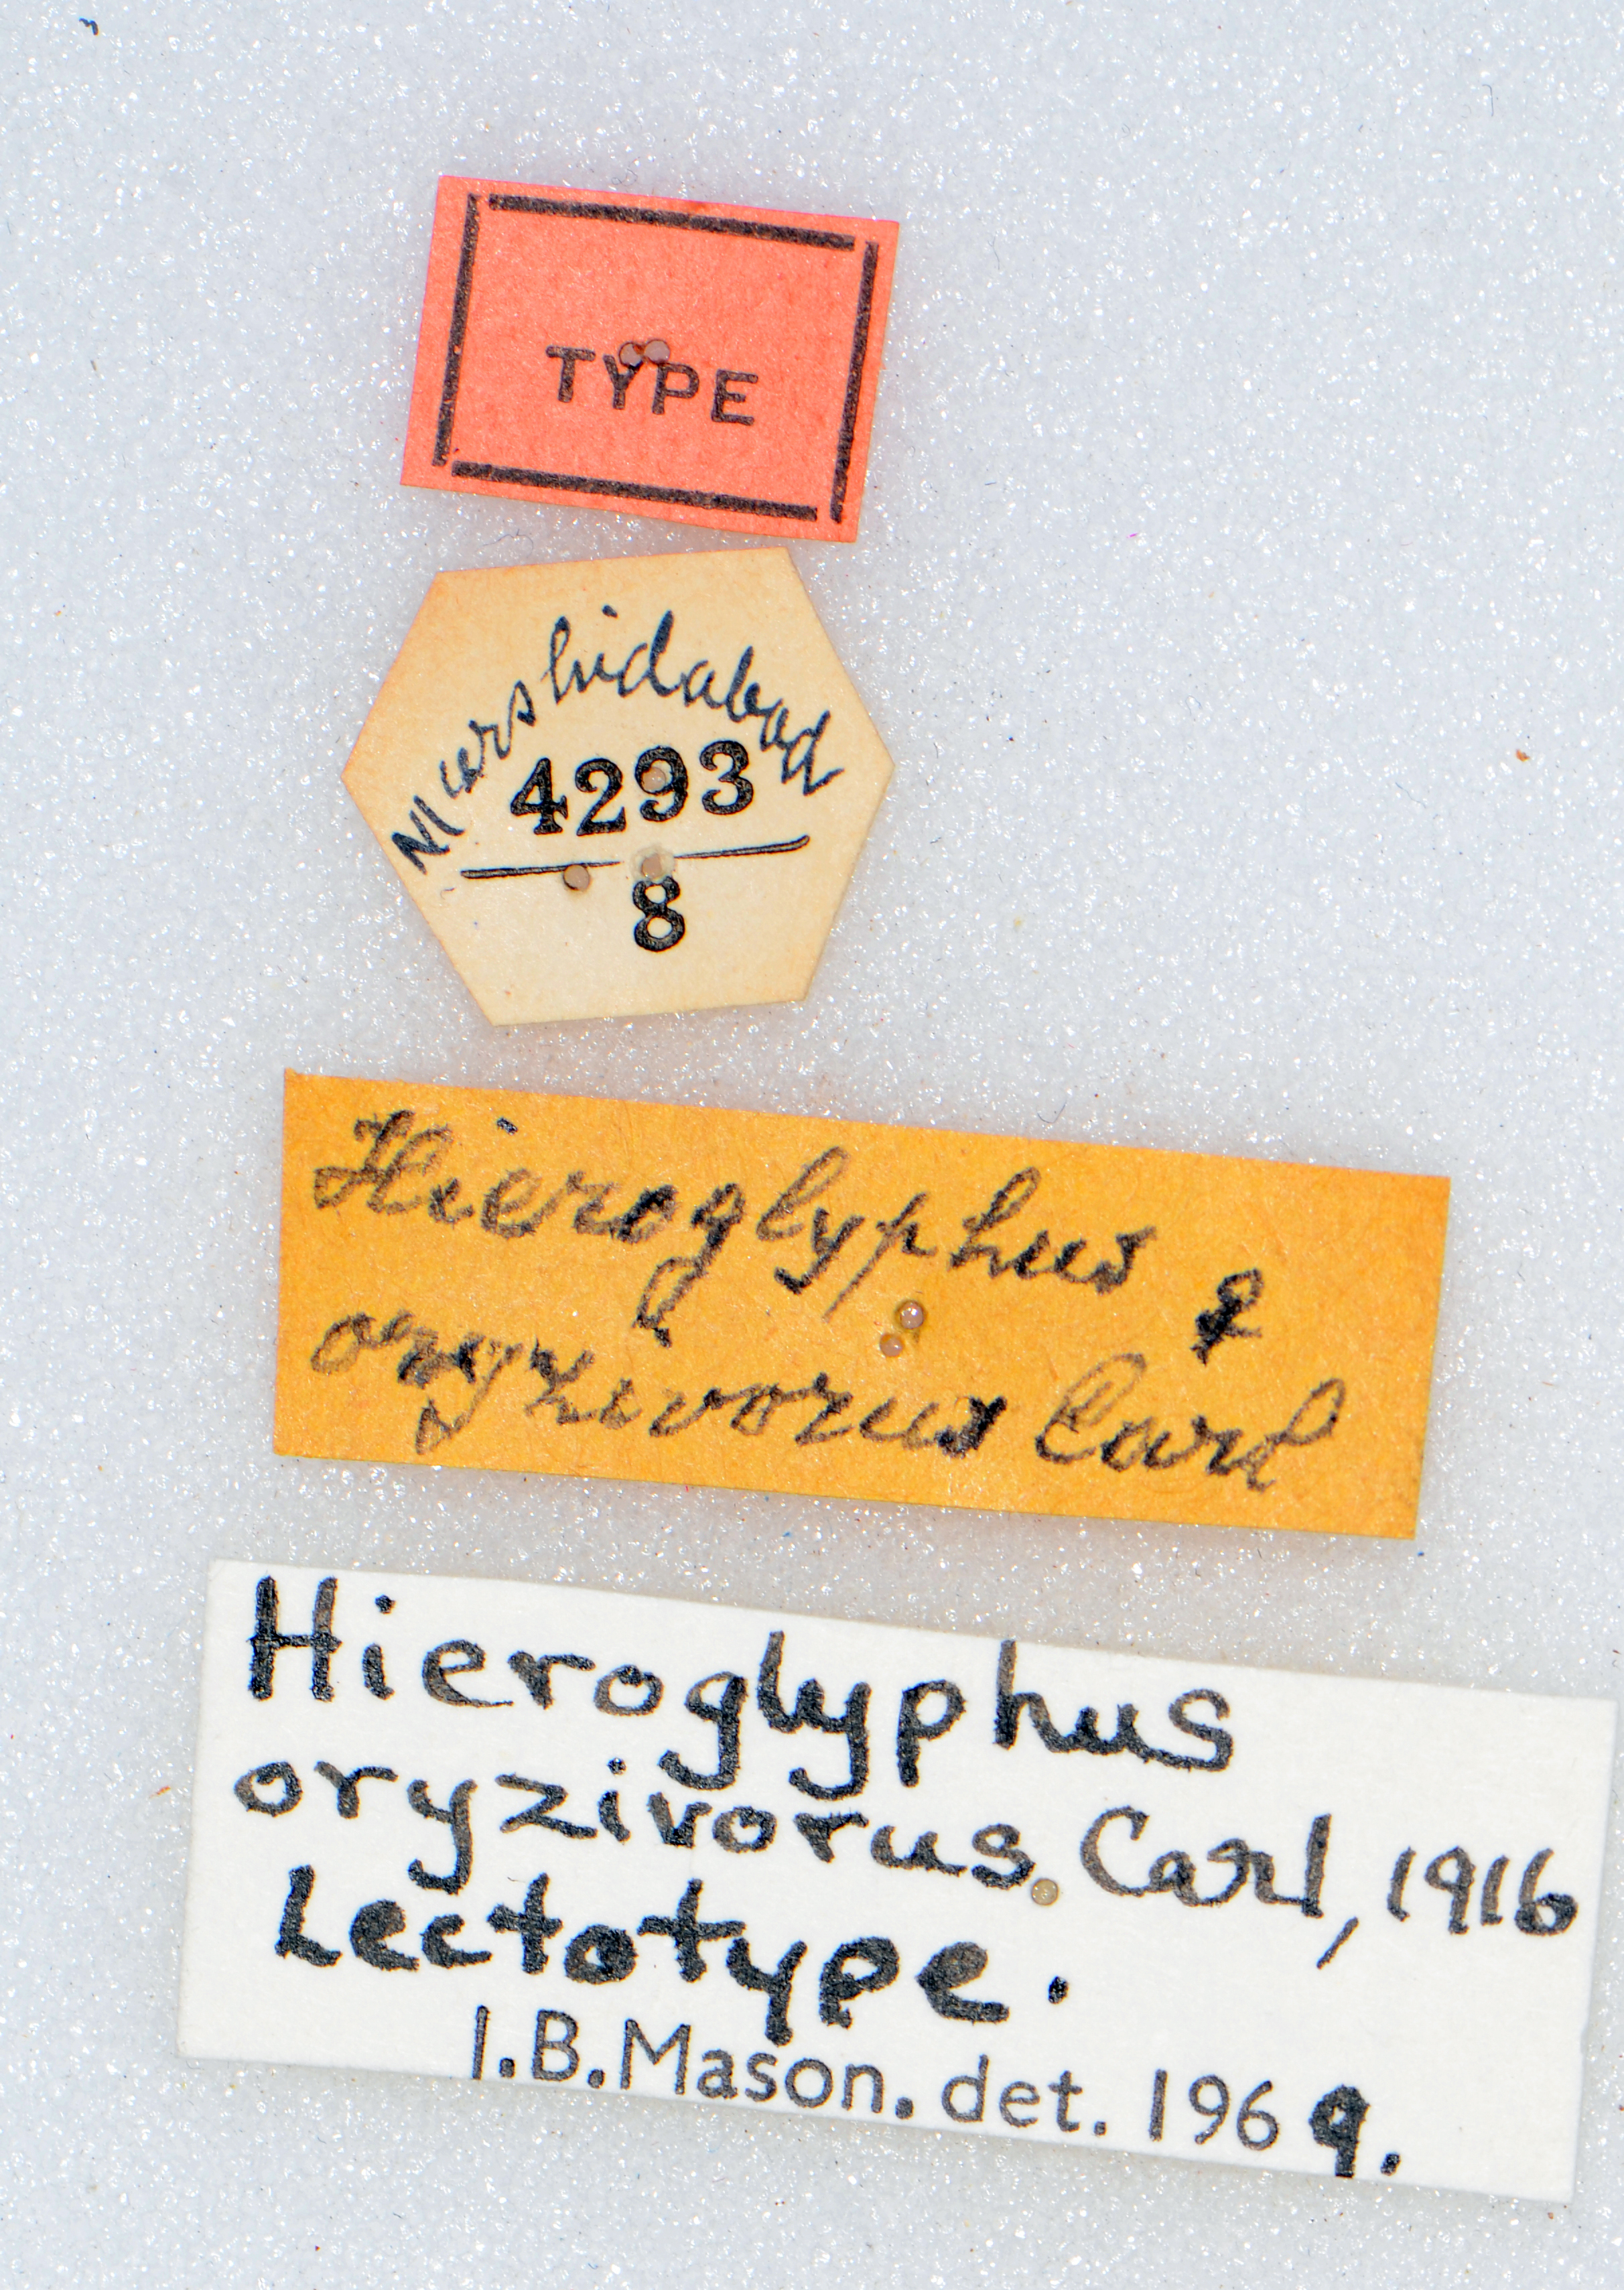 TYPE
Murshidabad
4293
8
Hieroglyphus ♀
oryzivorus Carl
Hieroglyphus
oryzivorus. Carl, 1916
Lectotype.
I.B.Mason. det. 1969.